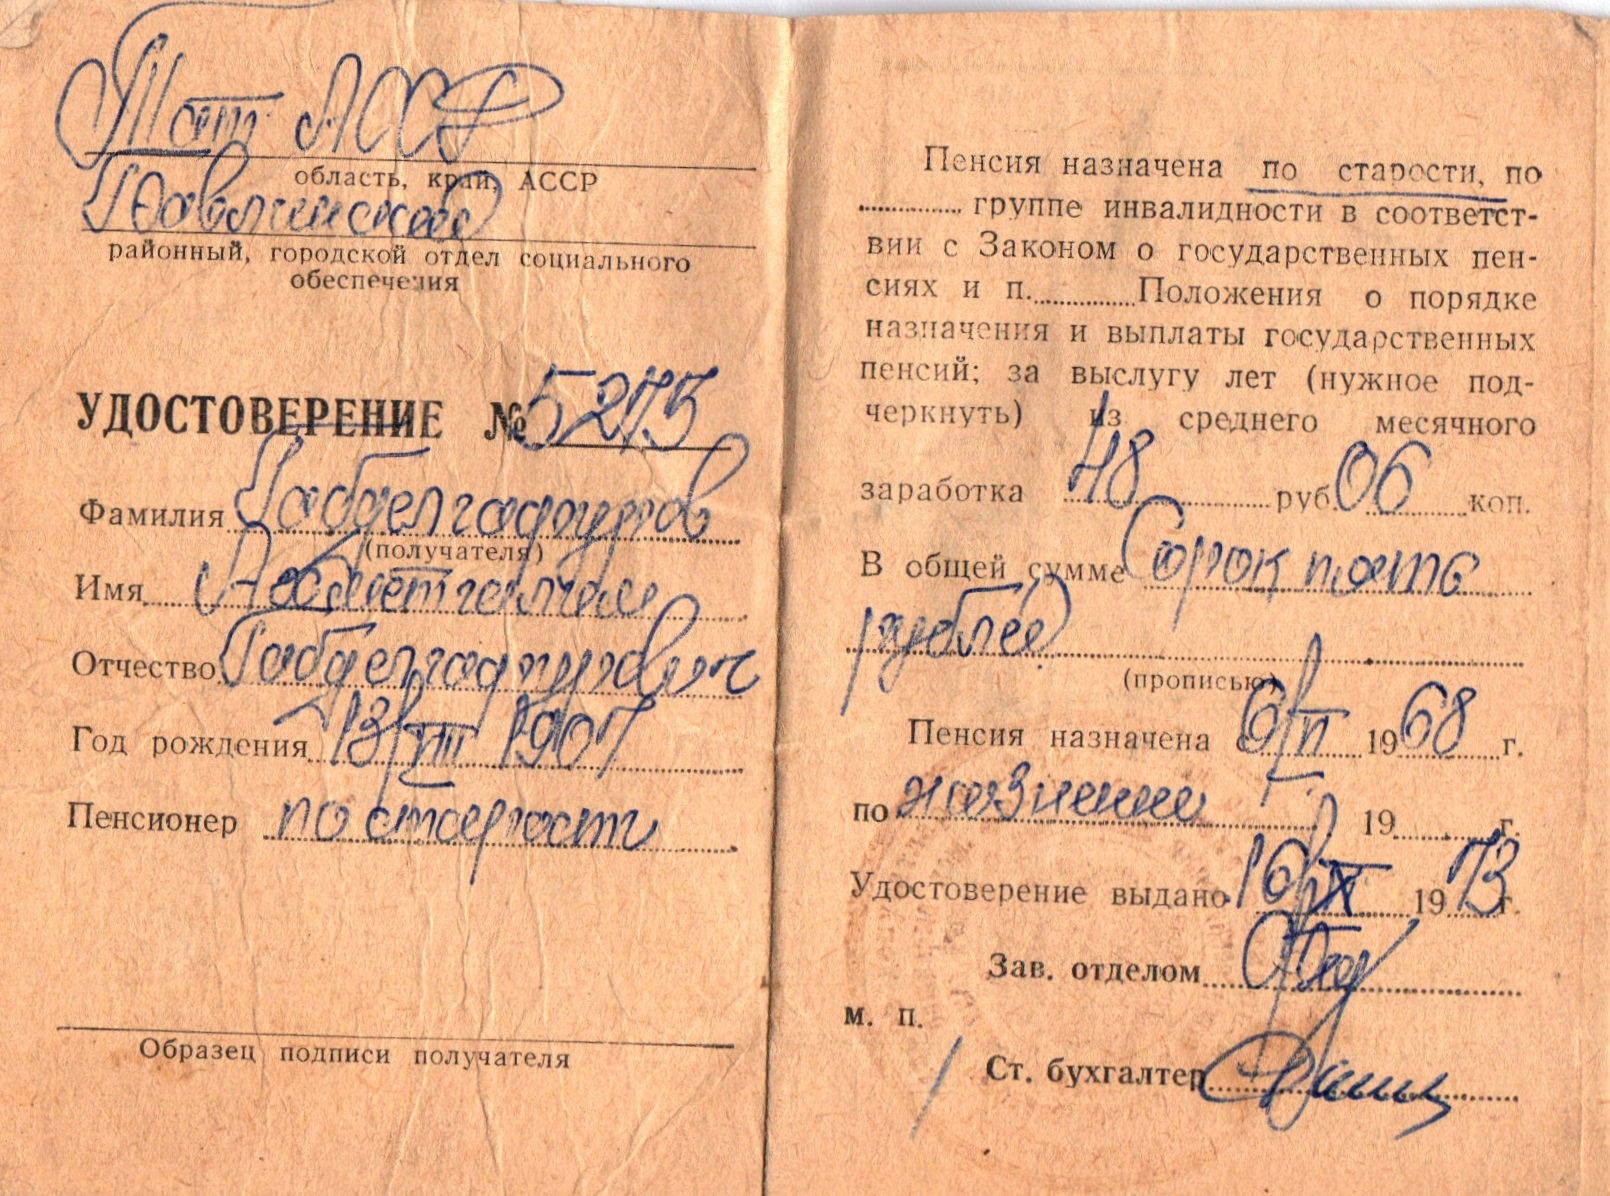 Тат АССР
область, край, АССР
районный, городской отдел социального
обеспечения
УДОСТОВЕРЕНИЕ № 5275
Фамилия Габделгафуров
(получателя)
Имя
Отчество Габделгафурович
Год рождения 13/VIII 1907
Пенсионер по старости
Образец подписи получателя
Пенсия назначена по старости, по
............ группе инвалидности в соответст-
вии с Законом о государственных пен-
сиях и п............Положения о порядке
назначения и выплаты государственных
пенсий; за выслугу лет (нужное под-
черкнуть) из среднего месячного
заработка 48 руб. 06 коп.
В общей сумме Сорок пять
рублей
(прописью)
Пенсия назначена с 6/II 1968 г.
по жизненно 19 г.
Удостоверение выдано 16/IX 1973 г.
Зав. отделом
м. п.
Ст. бухгалтер